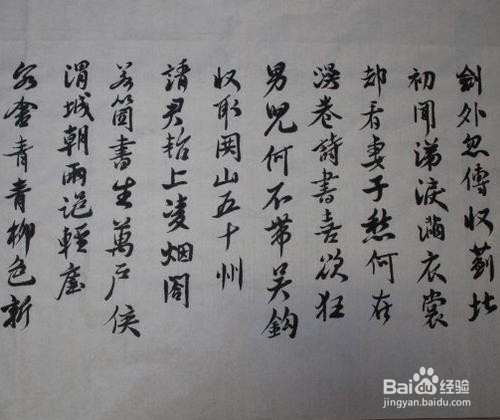 劍外忽傳收薊北
初聞涕淚滿衣裳
却看妻子愁何在
漫卷詩書喜欲狂
男兒何不帶吳鈎
收取関山五十州
請君暫上凌烟閣
若箇書生萬戶侯
渭城朝雨浥輕塵
客舍青青柳色新
Baidu经验
jingyan.baidu.com